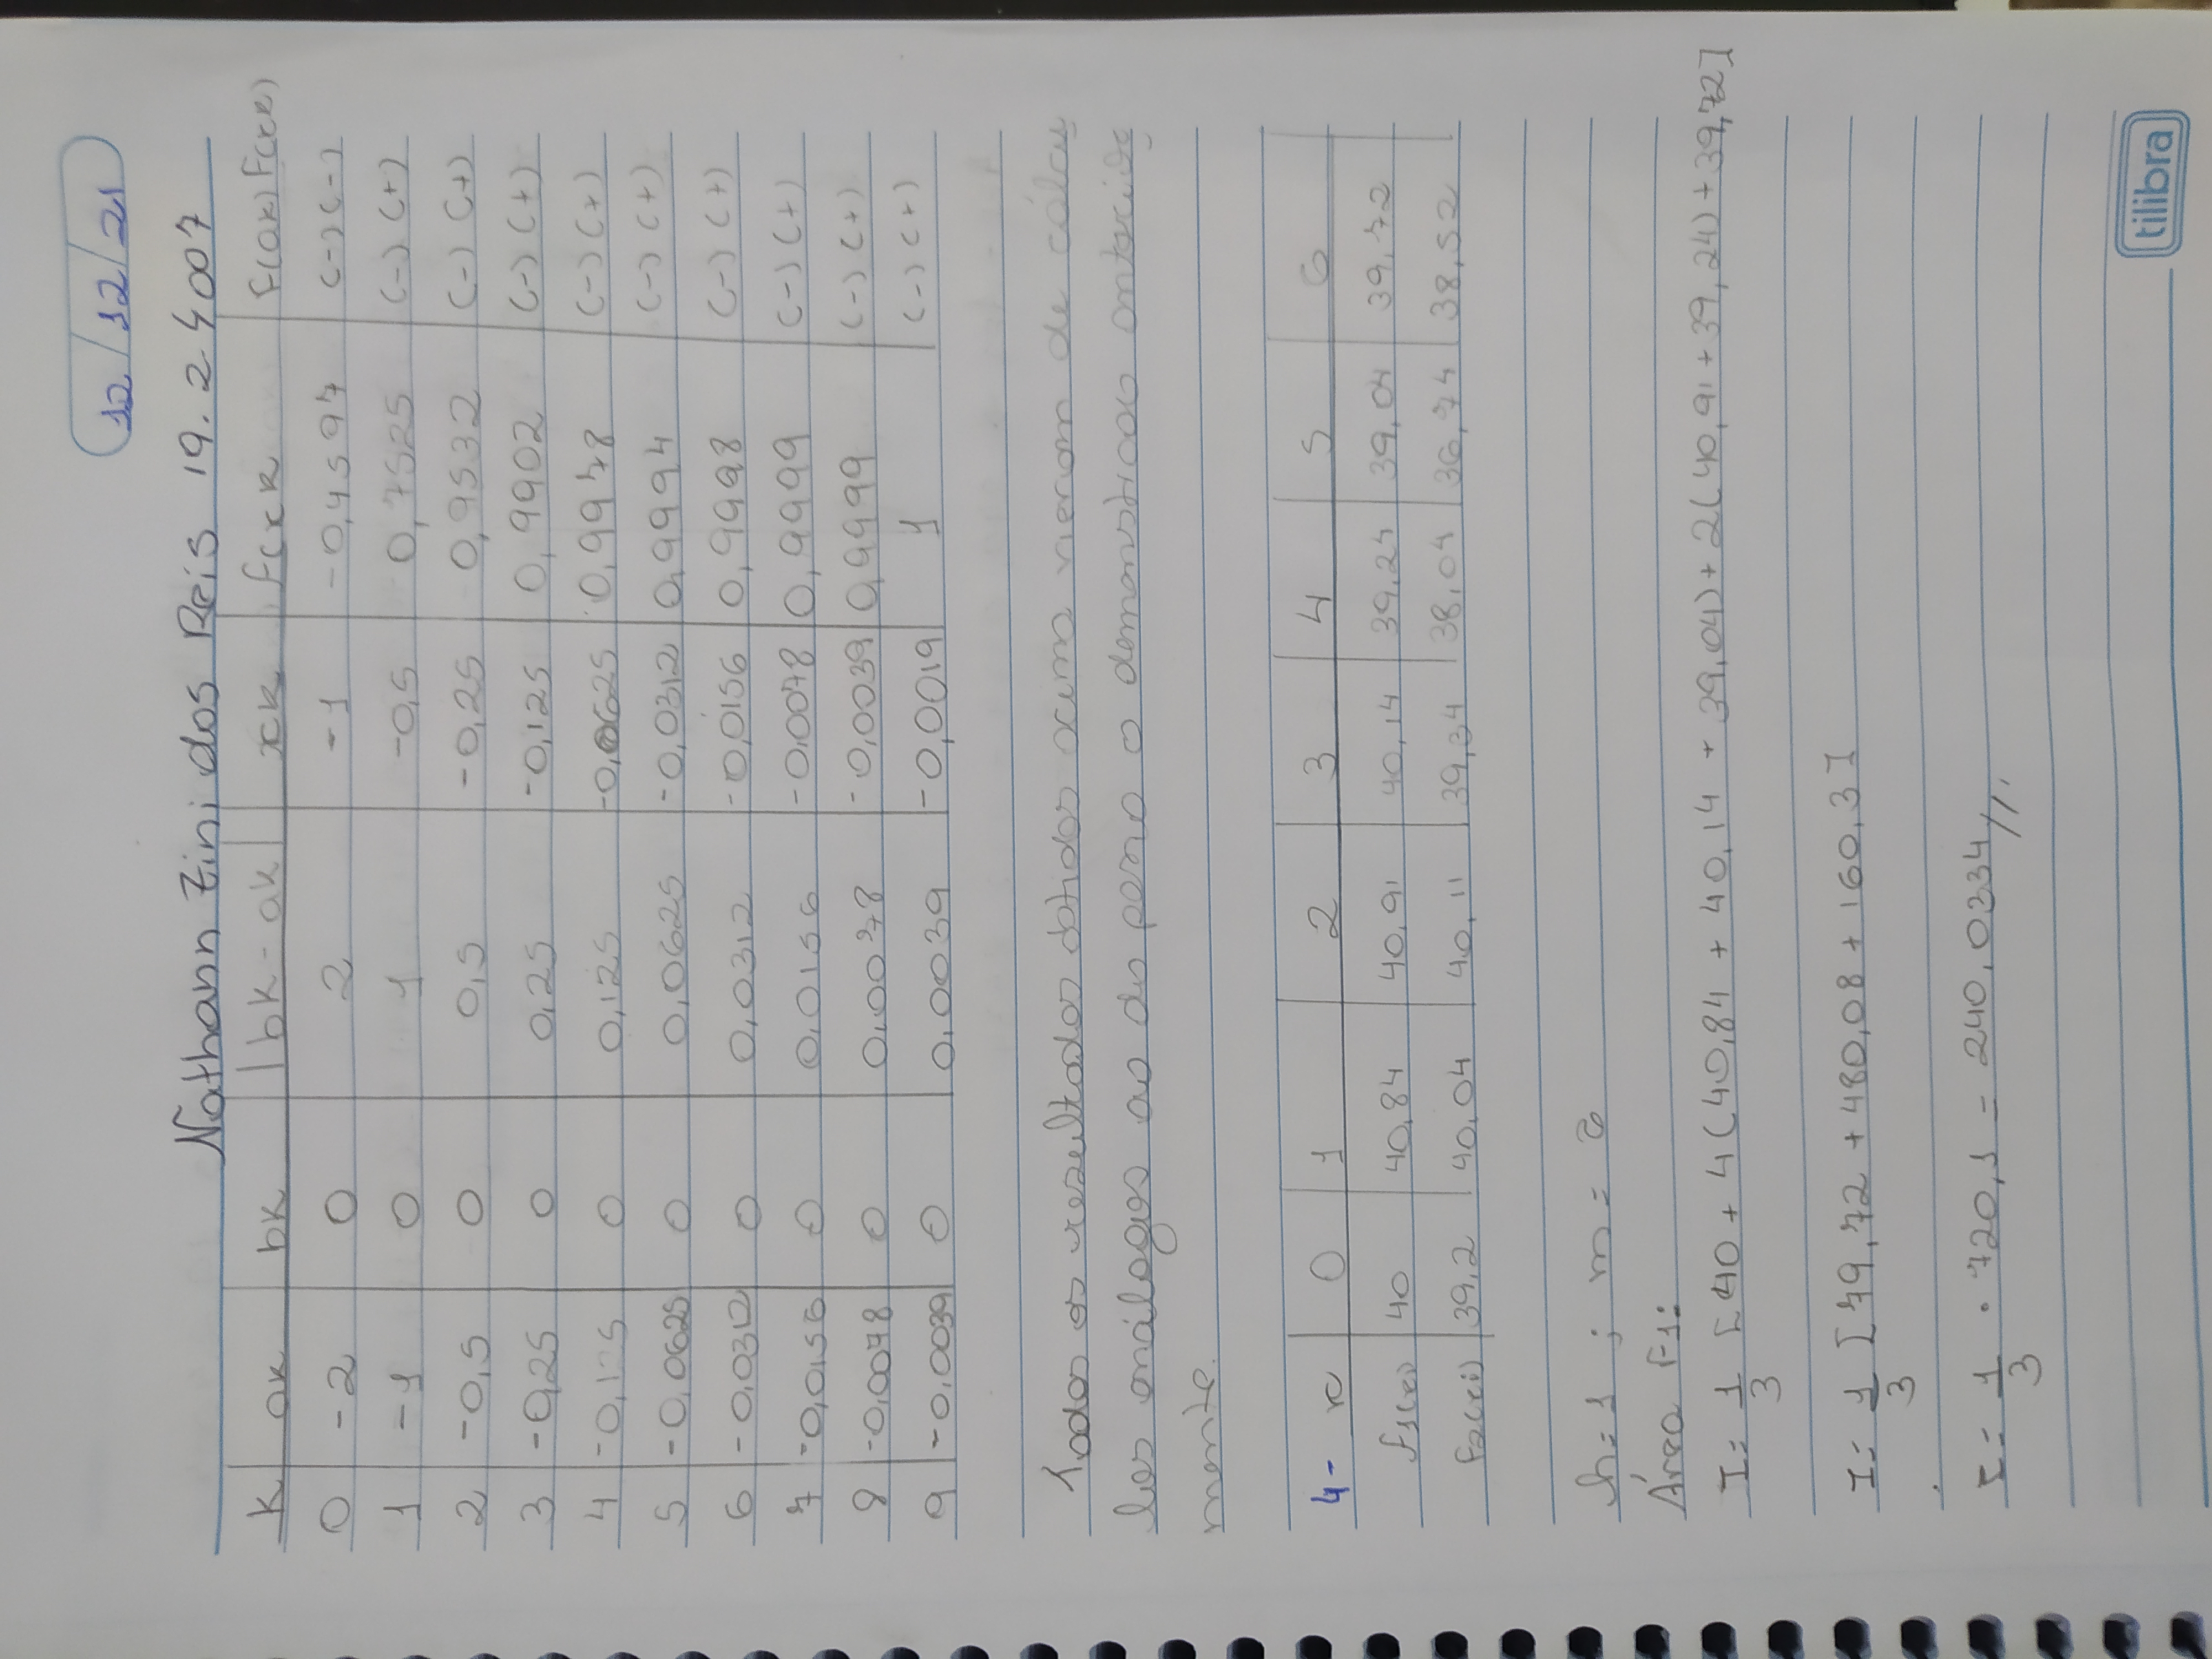 12/12/21
Nathann Zini dos Reis 19.2 4007
k ak bk |bk-ak| xk f(xk f(ak) f(xk)
0 -2 0 2 -1 -0,4597 (-)(-)
1 -1 0 1 -0,5 0,7525 (-) (+)
2 -0,5 0 0,5 -0,25 0,9532 (-) (+)
3 -0,25 0 0,25 -0,125 0,9902 (-) (+)
4 -0,125 0 0,125 -0,0625 0,9978 (-) (+)
5 -0,0625 0 0,0625 -0,0312 0,9994 (-) (+)
6 -0,0312 0 0,0312 -0,0156 0,9998 (-) (+)
7 -0,0156 0 0,0156 -0,0078 0,9999 (-) (+)
8 -0,0078 0 0,0078 -0,0039 0,9999 (-) (+)
9 -0,0039 0 0,0039 -0,0019 1 (-) (+)
Todos os resultados obtidos acima vieram de cálcu
los análogos ao do passo o demonstrado anterior
mente.
4- x 0 1 2 3 4 5 6
f1(xi) 40 40,84 40,91 40,14 39,24 39,04 39,72
f2(xi) 39,2 40,04 40,11 39,34 38,04 36,74 38,52
h=1 ; m = 6
Área F1:
I= 1/3 [40 + 4(40,84 + 40,14 + 39,04) + 2(40,91 + 39,24) + 39,72]
I= 1/3 [79,72 + 480,08 + 160,3]
I= 1/3 • 720,1 = 240,0334//.
tilibra